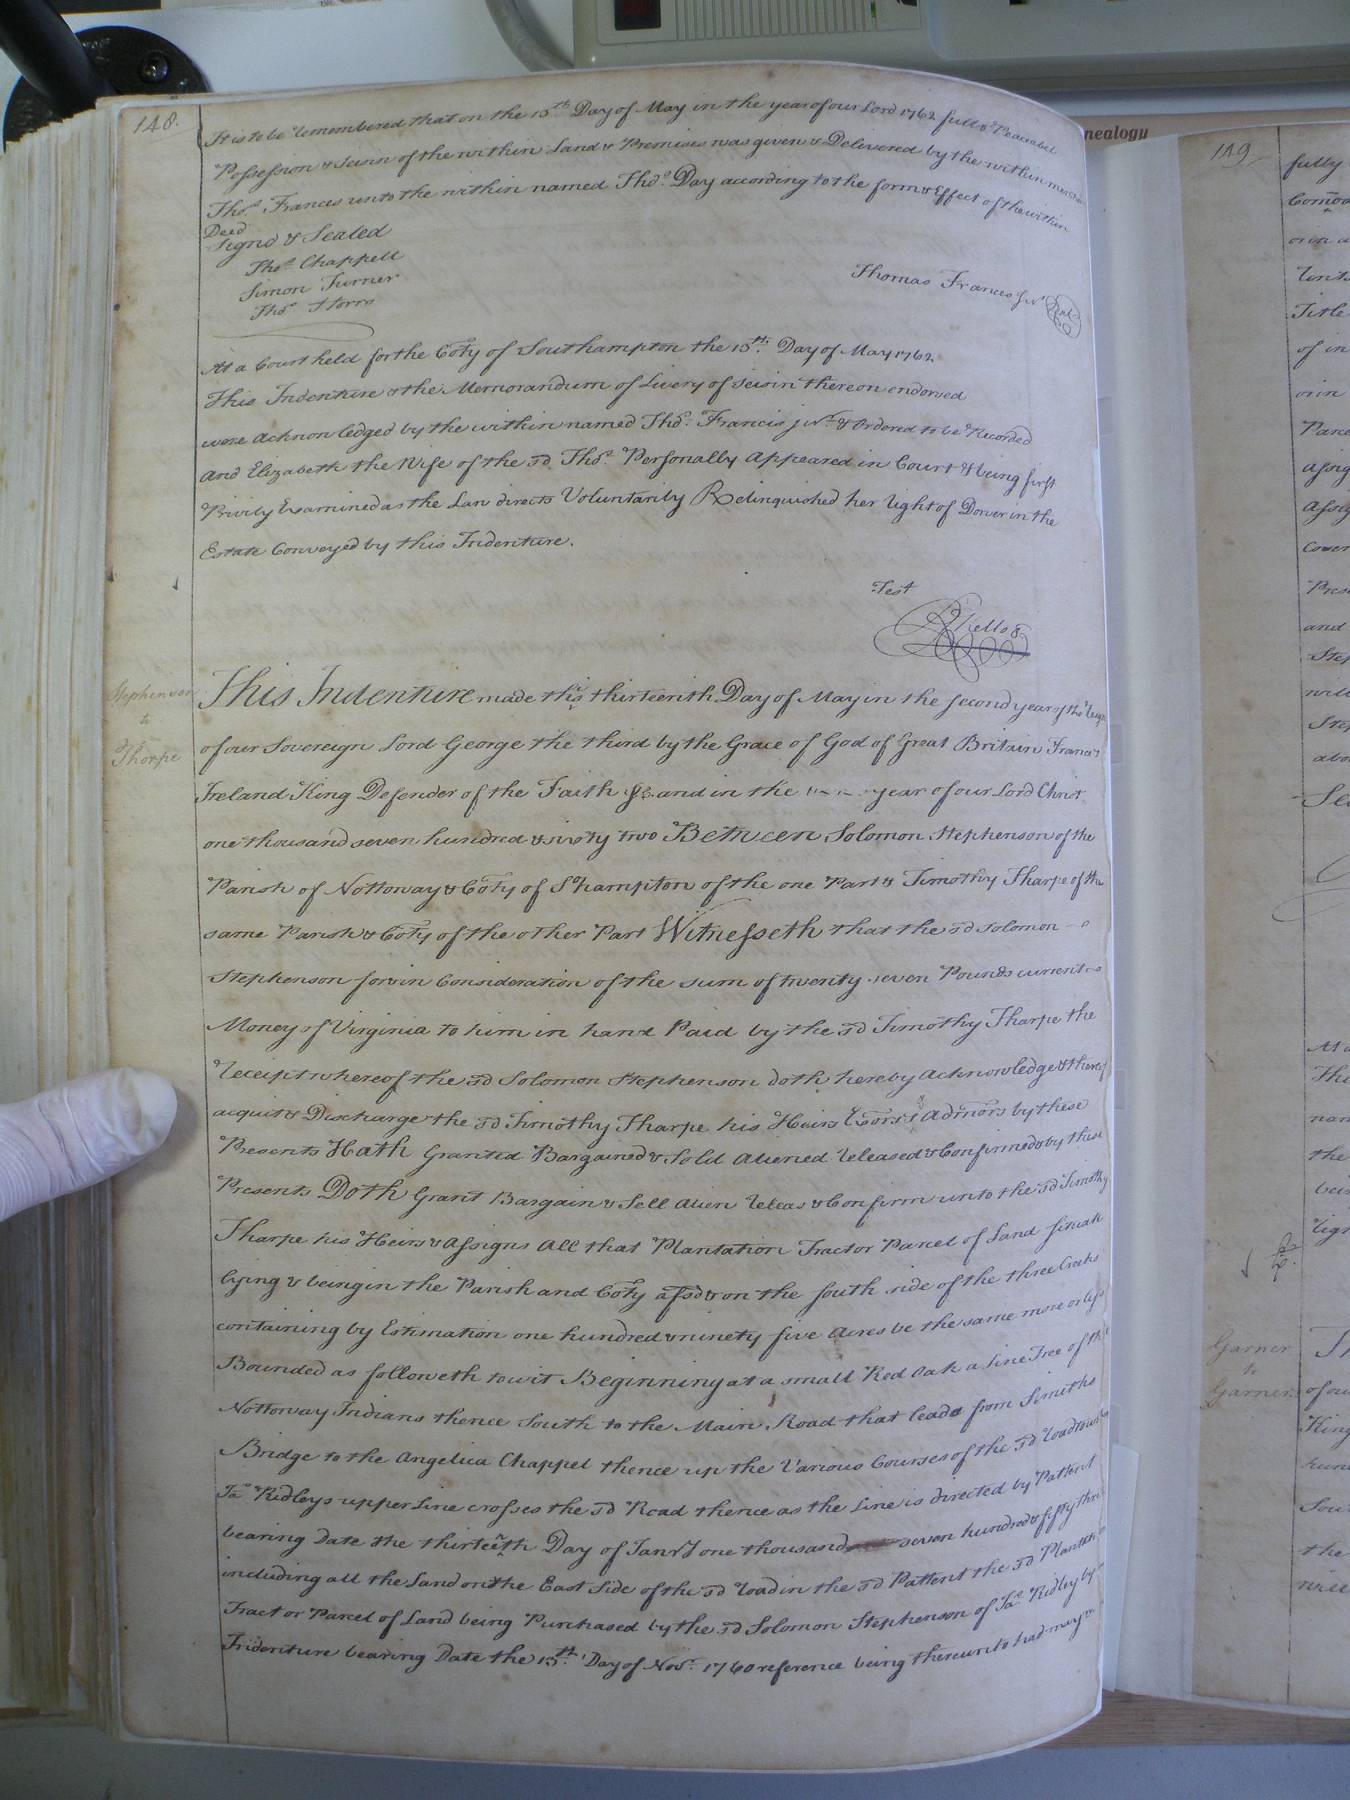 148.
It is to be Remembered that on the 13th Day of May in the year of our Lord 1762 full & Peaceabel
Possession & Seisin of the within Land & Premises was given & Delivered by the within
Thos. Frances unto the within named Thos. Day according to the form & Effect of the within
Deed
Signd & Sealed
Thos. Chappell
Simon Turner
Thos.
Thomas Frances Junr
Seal
At a Court held for the Coty of Southampton the 13th. Day of May 1762
This Indenture & the Memorandum of Livery of Seisin thereon endorsed
were Acknowledged by the within named Thos. Francis junr. & Ordered to be Recorded
And Elizabeth the Wife of the sd Thos. Personally Appeared in Court & being first
Privily Examined as the Law directs Voluntarily Relinquished her Right of Dower in the
Estate Conveyed by this Indenture.
Test
R Kello
Stephenson
to
Thorpe
This Indenture made this thirteenth Day of May in the second year of the Reign
of our Sovereign Lord George the third by the Grace of God of Great Britain France &
Ireland King Defender of the Faith &c and in the year of our Lord Christ
one thousand seven hundred & sixty two Between Solomon Stephenson of the
Parish of Nottoway & Coty of So.hampton of the one Part & Timothy Tharpe of the
same Parish & Coty of the other Part Witnesseth that the sd Solomon
Stephenson for & in Consideration of the sum of twenty seven Pounds current
Money of Virginia to him in hand Paid by the sd Timothy Tharpe the
Receipt whereof the sd Solomon Stephenson doth hereby Acknowledge & thereof
acquit & Discharge the sd Timothy Tharpe his Heirs Exors & Admors by these
Presents Hath Granted Bargained & Sold Aliened Released & Confirmed & by these
Presents Doth Grant Bargain & Sell Alien Releas & Confirm unto the sd Timothy
Tharpe his Heirs & Assigns All that Plantation Tract or Parcel of Land situate
lying & being in the Parish and Coty afsd & on the south side of the three Creeks
containing by Estimation one hundred & ninety five Acres be the same more or less
Bounded as followeth towit Beginning at a small Red Oak a Line Tree of the
Nottoway Indians thence South to the Main Road that leads from Smiths
Bridge to the Angelica Chappel thence up the Various Courses of the sd Road to where
Jas Ridleys upper Line crosses the sd Road thence as the Line is directed by Pattent
bearing Date the thirteenth Day of Janry one thousand seven hundred & fifty three
including all the Land on the East Side of the sd Road in the sd Pattent the sd Plantation
Tract or Parcel of Land being Purchased by the sd Solomon Stephenson of Jas Ridley by
Indenture bearing Date the 13th. Day of Novr. 1760 reference being thereunto had may
nealogy
149
fully
Title
of in
or in
assig
and
Step
will
Step
abo
Sea
nam
the
bei
Garner
to
Garner
of our
King
the
will